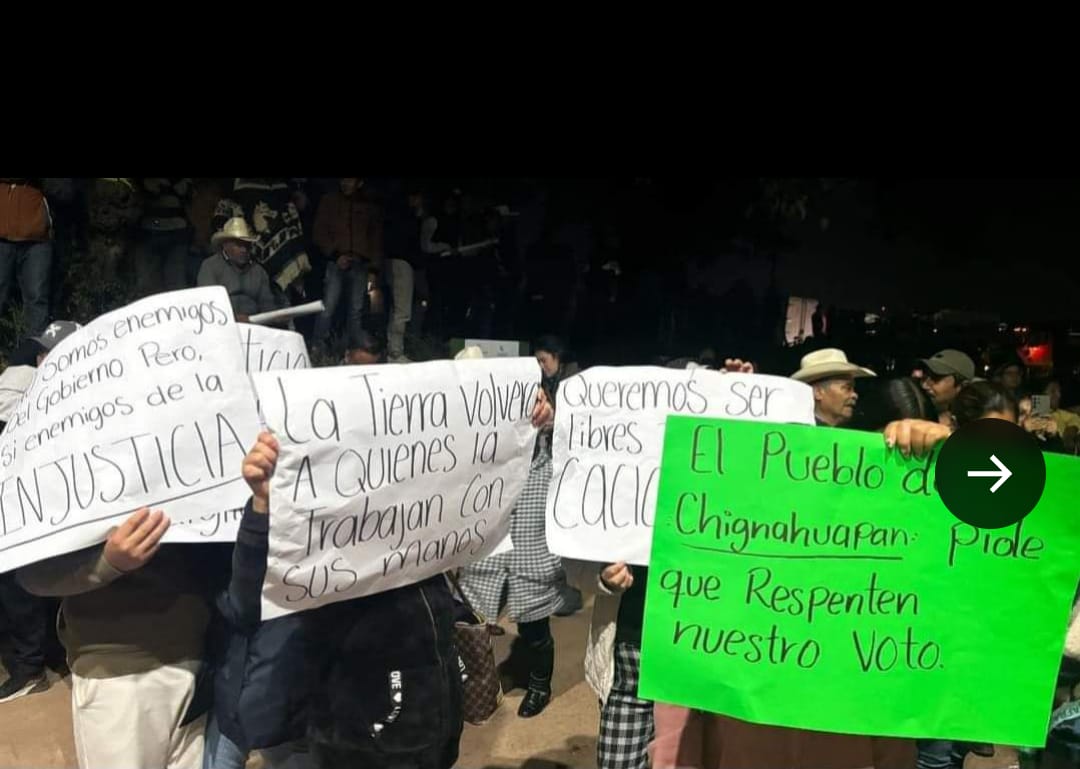 Somos enemigos
Del Gobierno Pero,
Si enemigos de la
INJUSTICIA
La Tierra Volverá
A QUIENES la
Trabajan Con
SUS manos
Queremos Ser
libres
El Pueblo
Chignahuapan: Pide
que Respenten
nuestro Voto.